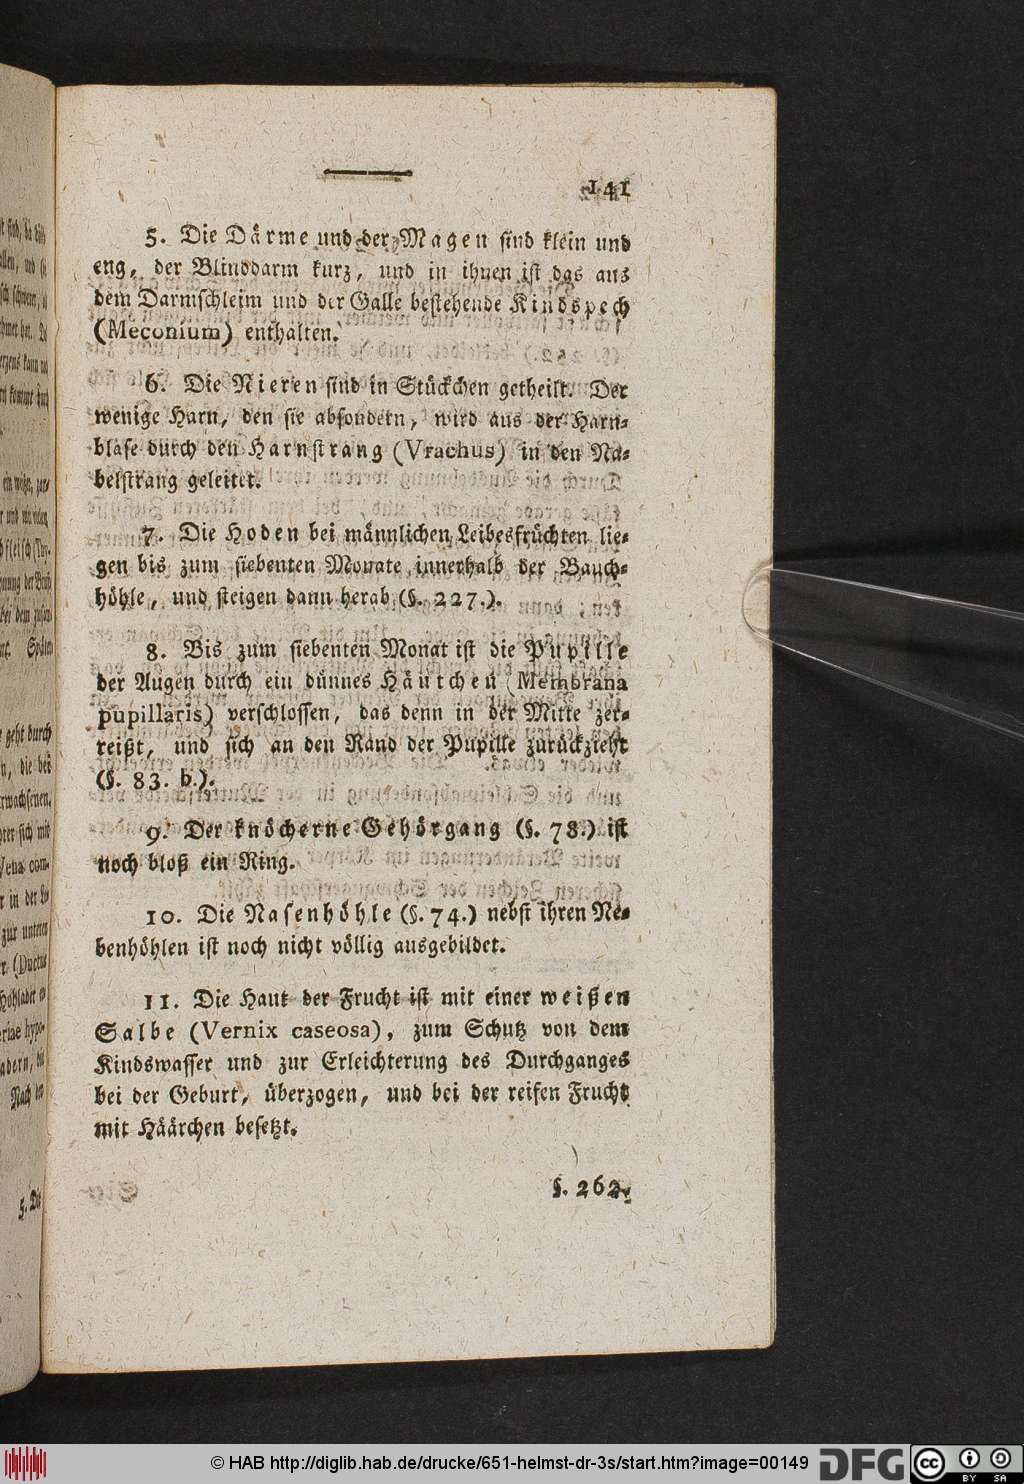 141
5. Die Därme und der Magen sind klein und
eng, der Blinddarm kurz, und in ihnen ist das aus
dem Darmschleim und der Galle bestehende Kindspech
(Meconium) enthalten.
6. Die Nieren sind in Stückchen getheilt. Der
wenige Harn, den sie absondern, wird aus der Harn-
blase durch den Harnstrang (Vrachus) in den Na-
belstrang geleitet.
7. Die Hoden bei männlichen Leibesfrüchten lie-
gen bis zum siebenten Monate innerhalb der Bauch-
höhle, und steigen dann herab (§. 227.).
8. Bis zum siebenten Monat ist die Pupille
der Augen durch ein dünnes Häutchen (Membrana
pupillaris) verschlossen, das denn in der Mitte zer-
reißt, und sich an den Rand der Pupille zurückzieht
(§. 83. b.).
9. Der knöcherne Gehörgang (§. 78.) ist
noch bloß ein Ring.
10. Die Nasenhöhle (§. 74.) nebst ihren Ne-
benhöhlen ist noch nicht völlig ausgebildet.
11. Die Haut der Frucht ist mit einer weißen
Salbe (Vernix caseosa), zum Schutz von dem
Kindswasser und zur Erleichterung des Durchganges
bei der Geburt, überzogen, und bei der reifen Frucht
mit Häärchen besetzt.
§. 262.
© HAB http://diglib.hab.de/drucke/651-helmst-dr-3s/start.htm?image=00149
DFG
cc
BY SA